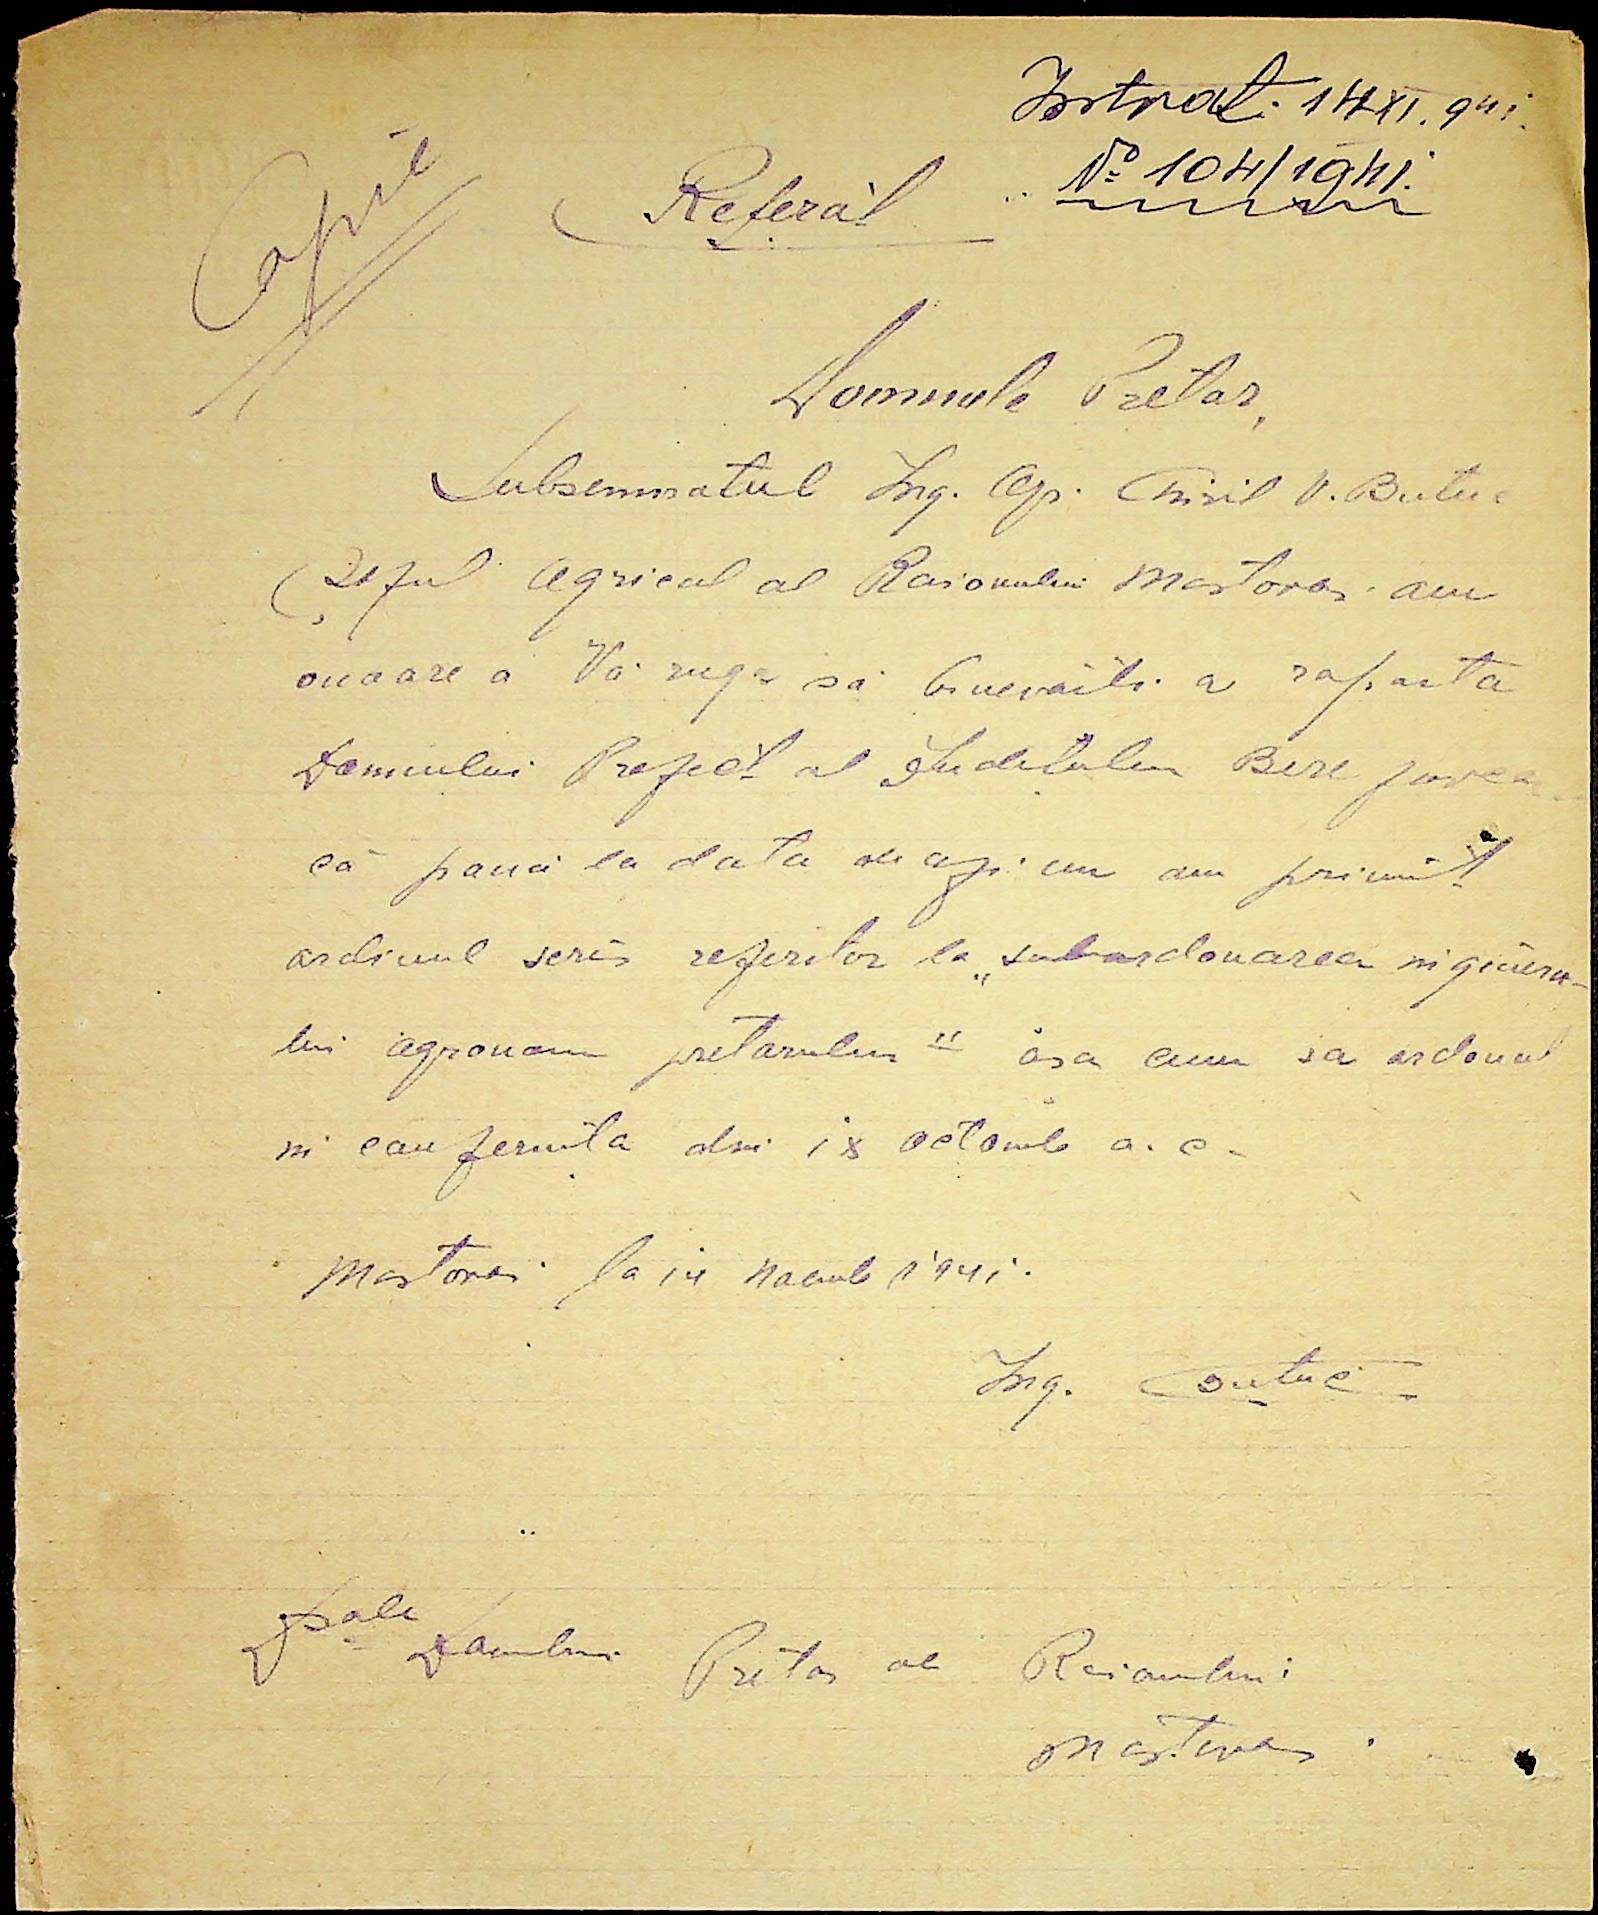 Intrat. 14 XI. 941.
No 104/1941.
Copie
Referat
Domnule Pretor,
Subsemnatul Ing. Agr. Chiril V. Butuc
Șeful Agricol al Raionului Mostovoi am
onoare a Vă ruga să binevoiți a raporta
Domnului Prefect al Județului Berezovca
că pană la data de azi nu am primit
ordinul scris referitor la „subordonarea ingineru-
lui agronom pretorului" așa cum sa ordonat
in conferința din 18 octomb a. c.
Mostovoi la 14 Noemb 1941.
Ing. Butuc
Dsale Domnului Pretor al Raionului
Mostovoi.